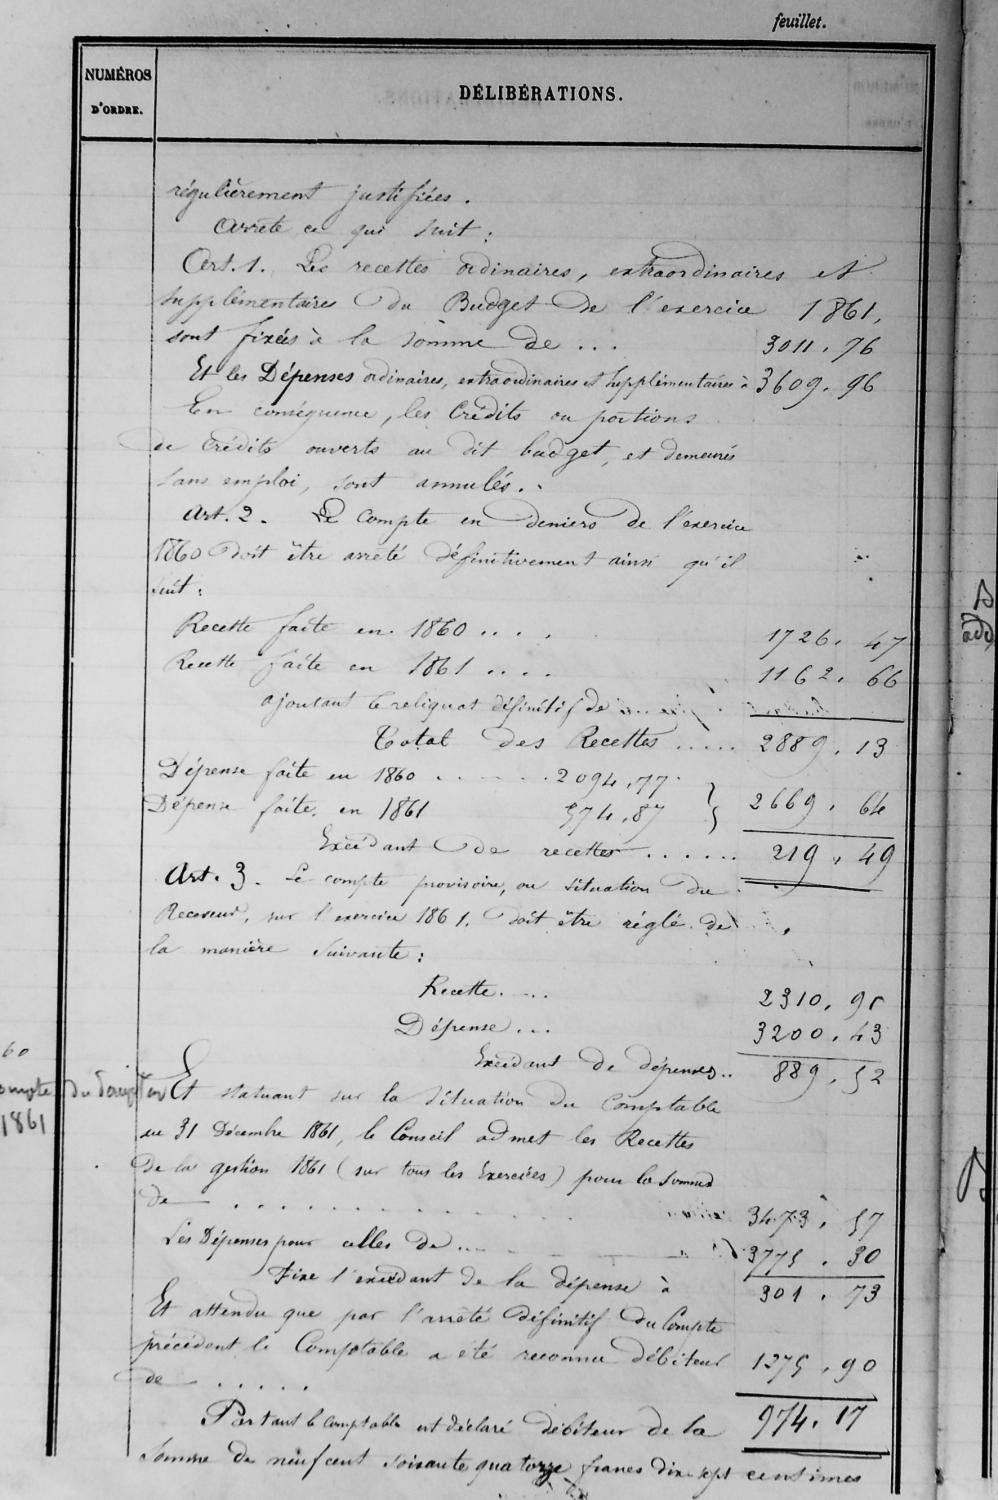 feuillet.
NUMÉROS
D'ORDRE.
DÉLIBÉRATIONS.
régulièrement justifiées.
Arrete ce qui suit :
Art. 1. Les recettes ordinaires, extraordinaires et
supplémentaires du Budget de l'exercice 1861,
sont fixées à la somme de ... 3011. 76
Et les Dépenses ordinaires, extraordinaires et supplémentaires à 3609. 96
En conséquence, les Crédits ou portions
de Crédits ouverts au dit budget, et demeurés
sans emploi, sont annulés.
Art. 2. Le Compte en deniers de l'exercice
1860 doit être arrêté définitivement ainsi qu'il
suit :
Recette faite en 1860 .... 1726. 47
Recette faite en 1861 .... 1162. 66
ajoutant le reliquat définitif de
Total des Recettes ..... 2889. 13
Dépense faite en 1860 ..... 2094,77
Dépense faite en 1861 574,87 } 2669. 64
Excédant de recettes ...... 219, 49
Art. 3. Le compte provisoire, ou situation du
Receveur, sur l'exercice 1861. doit être réglé de
la manière suivante :
Recette.... 2310. 91
Dépense... 3200. 43
Excédant de dépenses.. 889. 52
60
compte du
1861
Et statuant sur la situation du Comptable
au 31 Décembre 1861, le Conseil admet les Recettes
de la gestion 1861 (sur tous les Exercices) pour la somme
de ............ 3473. 57
Les Dépenses pour celles de ... 3775. 30
Fixe l'excédant de la dépense à 301. 73
Et attendu que par l'arrêté définitif du Compte
précédent le Comptable a été reconnu débiteur
de ..... 1275, 90
Partant le comptable est déclaré débiteur de la 974. 17
Somme de neuf cent soixante quatorze francs dix sept centimes